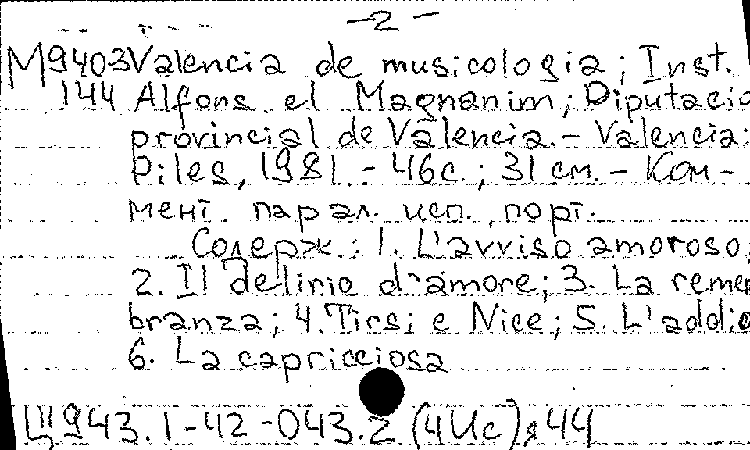 - 2 -
М9403 Valencia de musicologia; Inst.
144 Alfons el Magnanim; Diputacio
provincial de Valencia. - Valencia:
Piles, 1981. - 46 с.; 31 см. - Ком-
мент. парал. исп., порт.
Содерж.: 1. L'avviso amoroso;
2. Il delirio d'amore; 3. La remem
branza; 4. Tirsi e Nice; 5. L'addio
6. La capricciosa
Щ943.1-42-043.2 (4Ис)я44